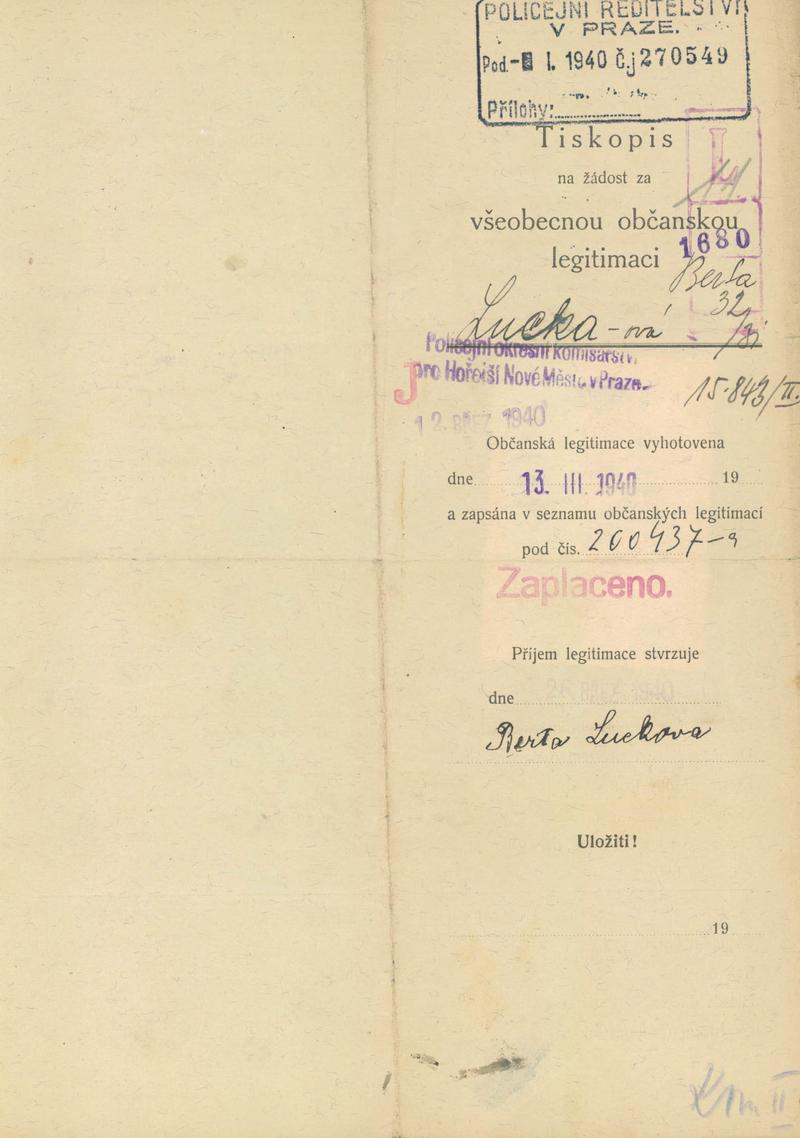 POLICEJNÍ ŘEDITELSTVÍ
V PRAZE.
Pod. I. 1940 Č.j 270549
Přílohy:
Tiskopis
na žádost za
14.
všeobecnou občanskou
1680
legitimaci
Berta
32
Lucka-ová
Policejní okresní komisařství
pro Hořejší Nové Město v Praze.
J
15.843/II.
12. BŘEZ 1940
Občanská legitimace vyhotovena
dne 13. III. 1940 19
a zapsána v seznamu občanských legitimací
pod čís. 200437-a
Zaplaceno.
Příjem legitimace stvrzuje
dne 26. BŘEZ. 1940
Berta Luckova
Uložiti!
19
Kom II